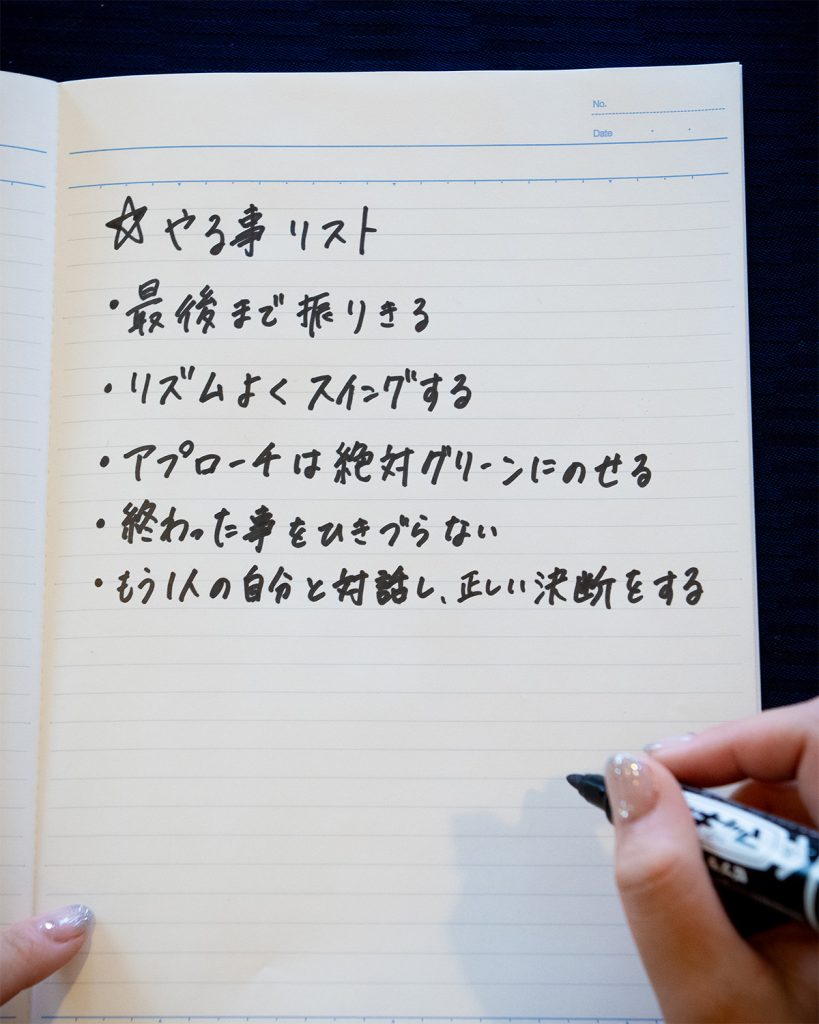 No.
Date
☆やる事リスト
・最後まで振りきる
・リズムよくスイングする
・アプローチは絶対グリーンにのせる
・終わった事をひきづらない
・もう1人の自分と対話し、正しい決断をする